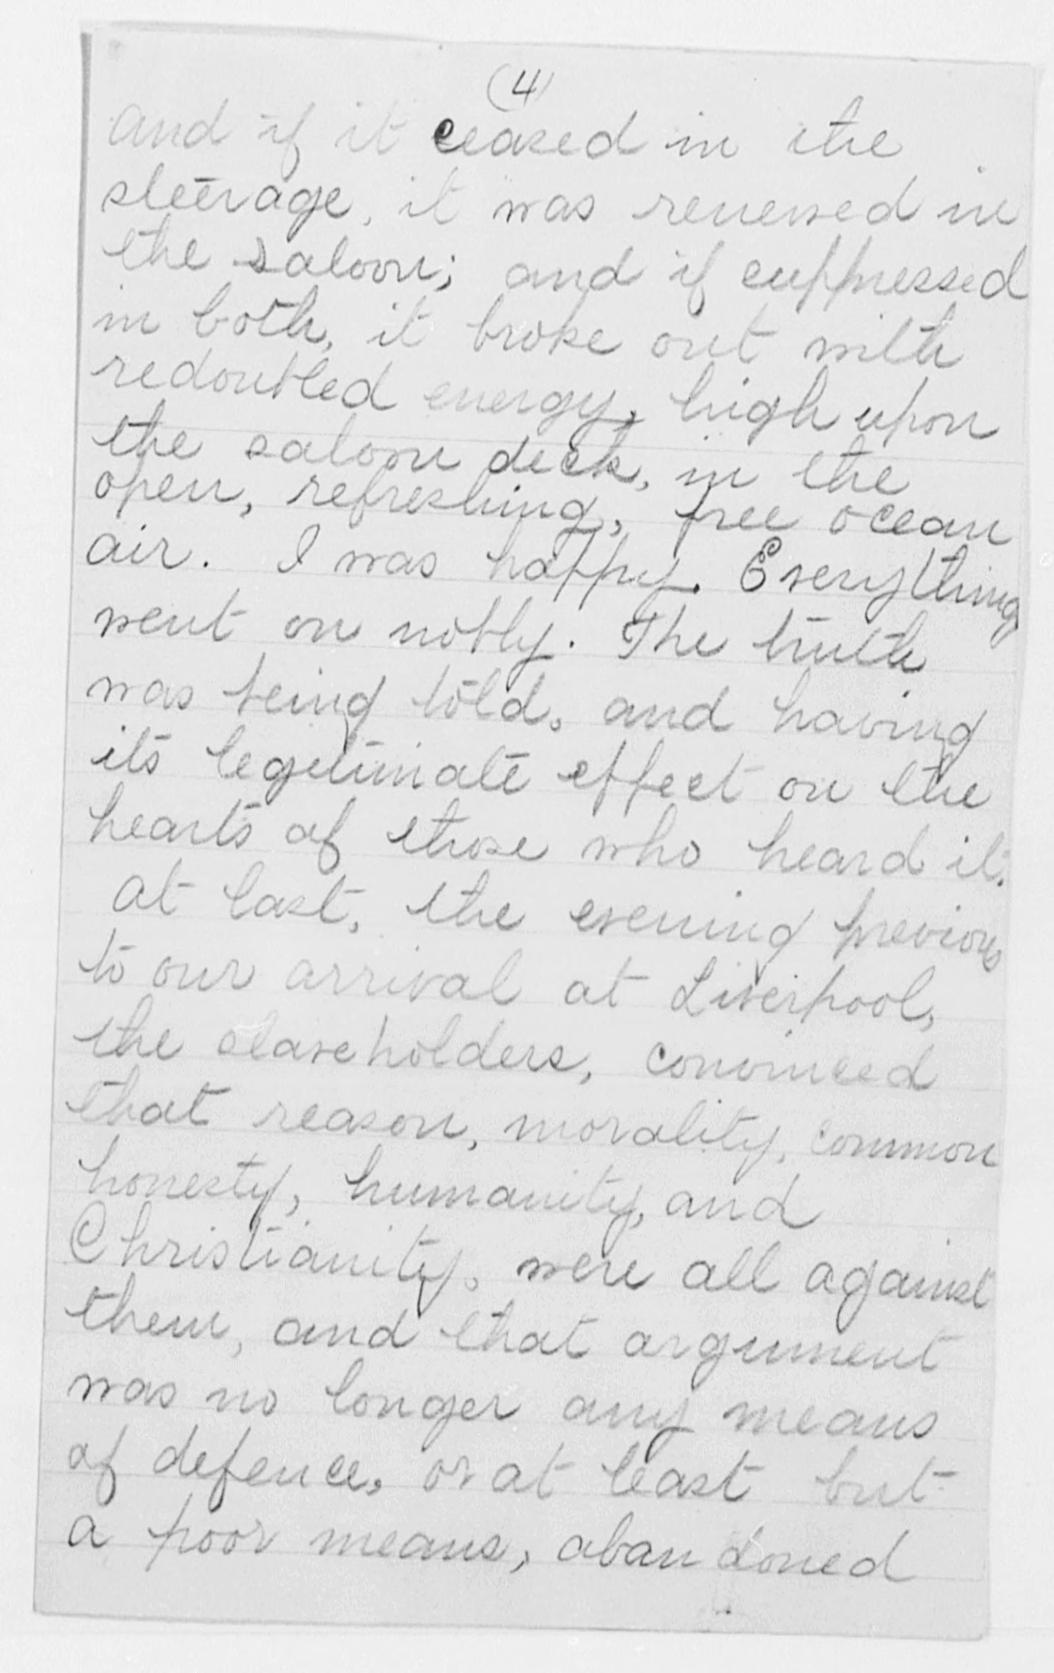 (4)
and if it ceased in the
steerage, it was renewed in
the saloon; and if suppressed
in both, it broke out with
redoubled energy, high upon
the saloon deck, in the
open, refreshing, free ocean
air. I was happy. Everything
went on nobly. The truth
was being told, and having
its legitimate effect on the
hearts of those who heard it.
at last, the evening previous
to our arrival at Liverpool,
the slaveholders, convinced
that reason, morality, common
honesty, humanity, and
Christianity, were all against
them, and that argument
was no longer any means
of defence, or at least but
a poor means, abandoned